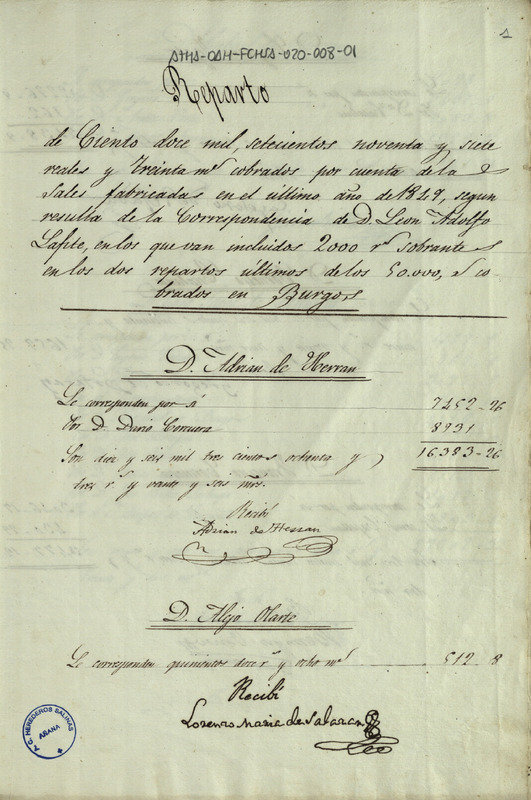 1
ATHA-DAH-FCHSA-020-008-01
Reparto
de Ciento doce mil, setecientos noventa y siete
reales y treinta mrs cobrados por cuenta de las
Sales fabricadas en el último año de 1847, segun
resulta de la Correspondencia de D. Leon Adolfo
Lafite, en los que van incluidos 2000 rs sobrantes
en los dos repartos últimos de los 50.000, co-
brados en Burgos
D. Adrian de Herran
Le corresponden por sí 7452-26
Por D. Dario Corcuera 8931
Son diez y seis mil tres cientos ochenta y 16,383-26
tres rs y veinte y seis mrs.
Recibí
Adrian de Herran
D. Alejo Olarte
Le corresponden quinientos doce rs y ocho mrs 512 8
Recibí
Lorenzo Maria de Salazar
A.C. HEREDEROS SALINAS
AÑANA